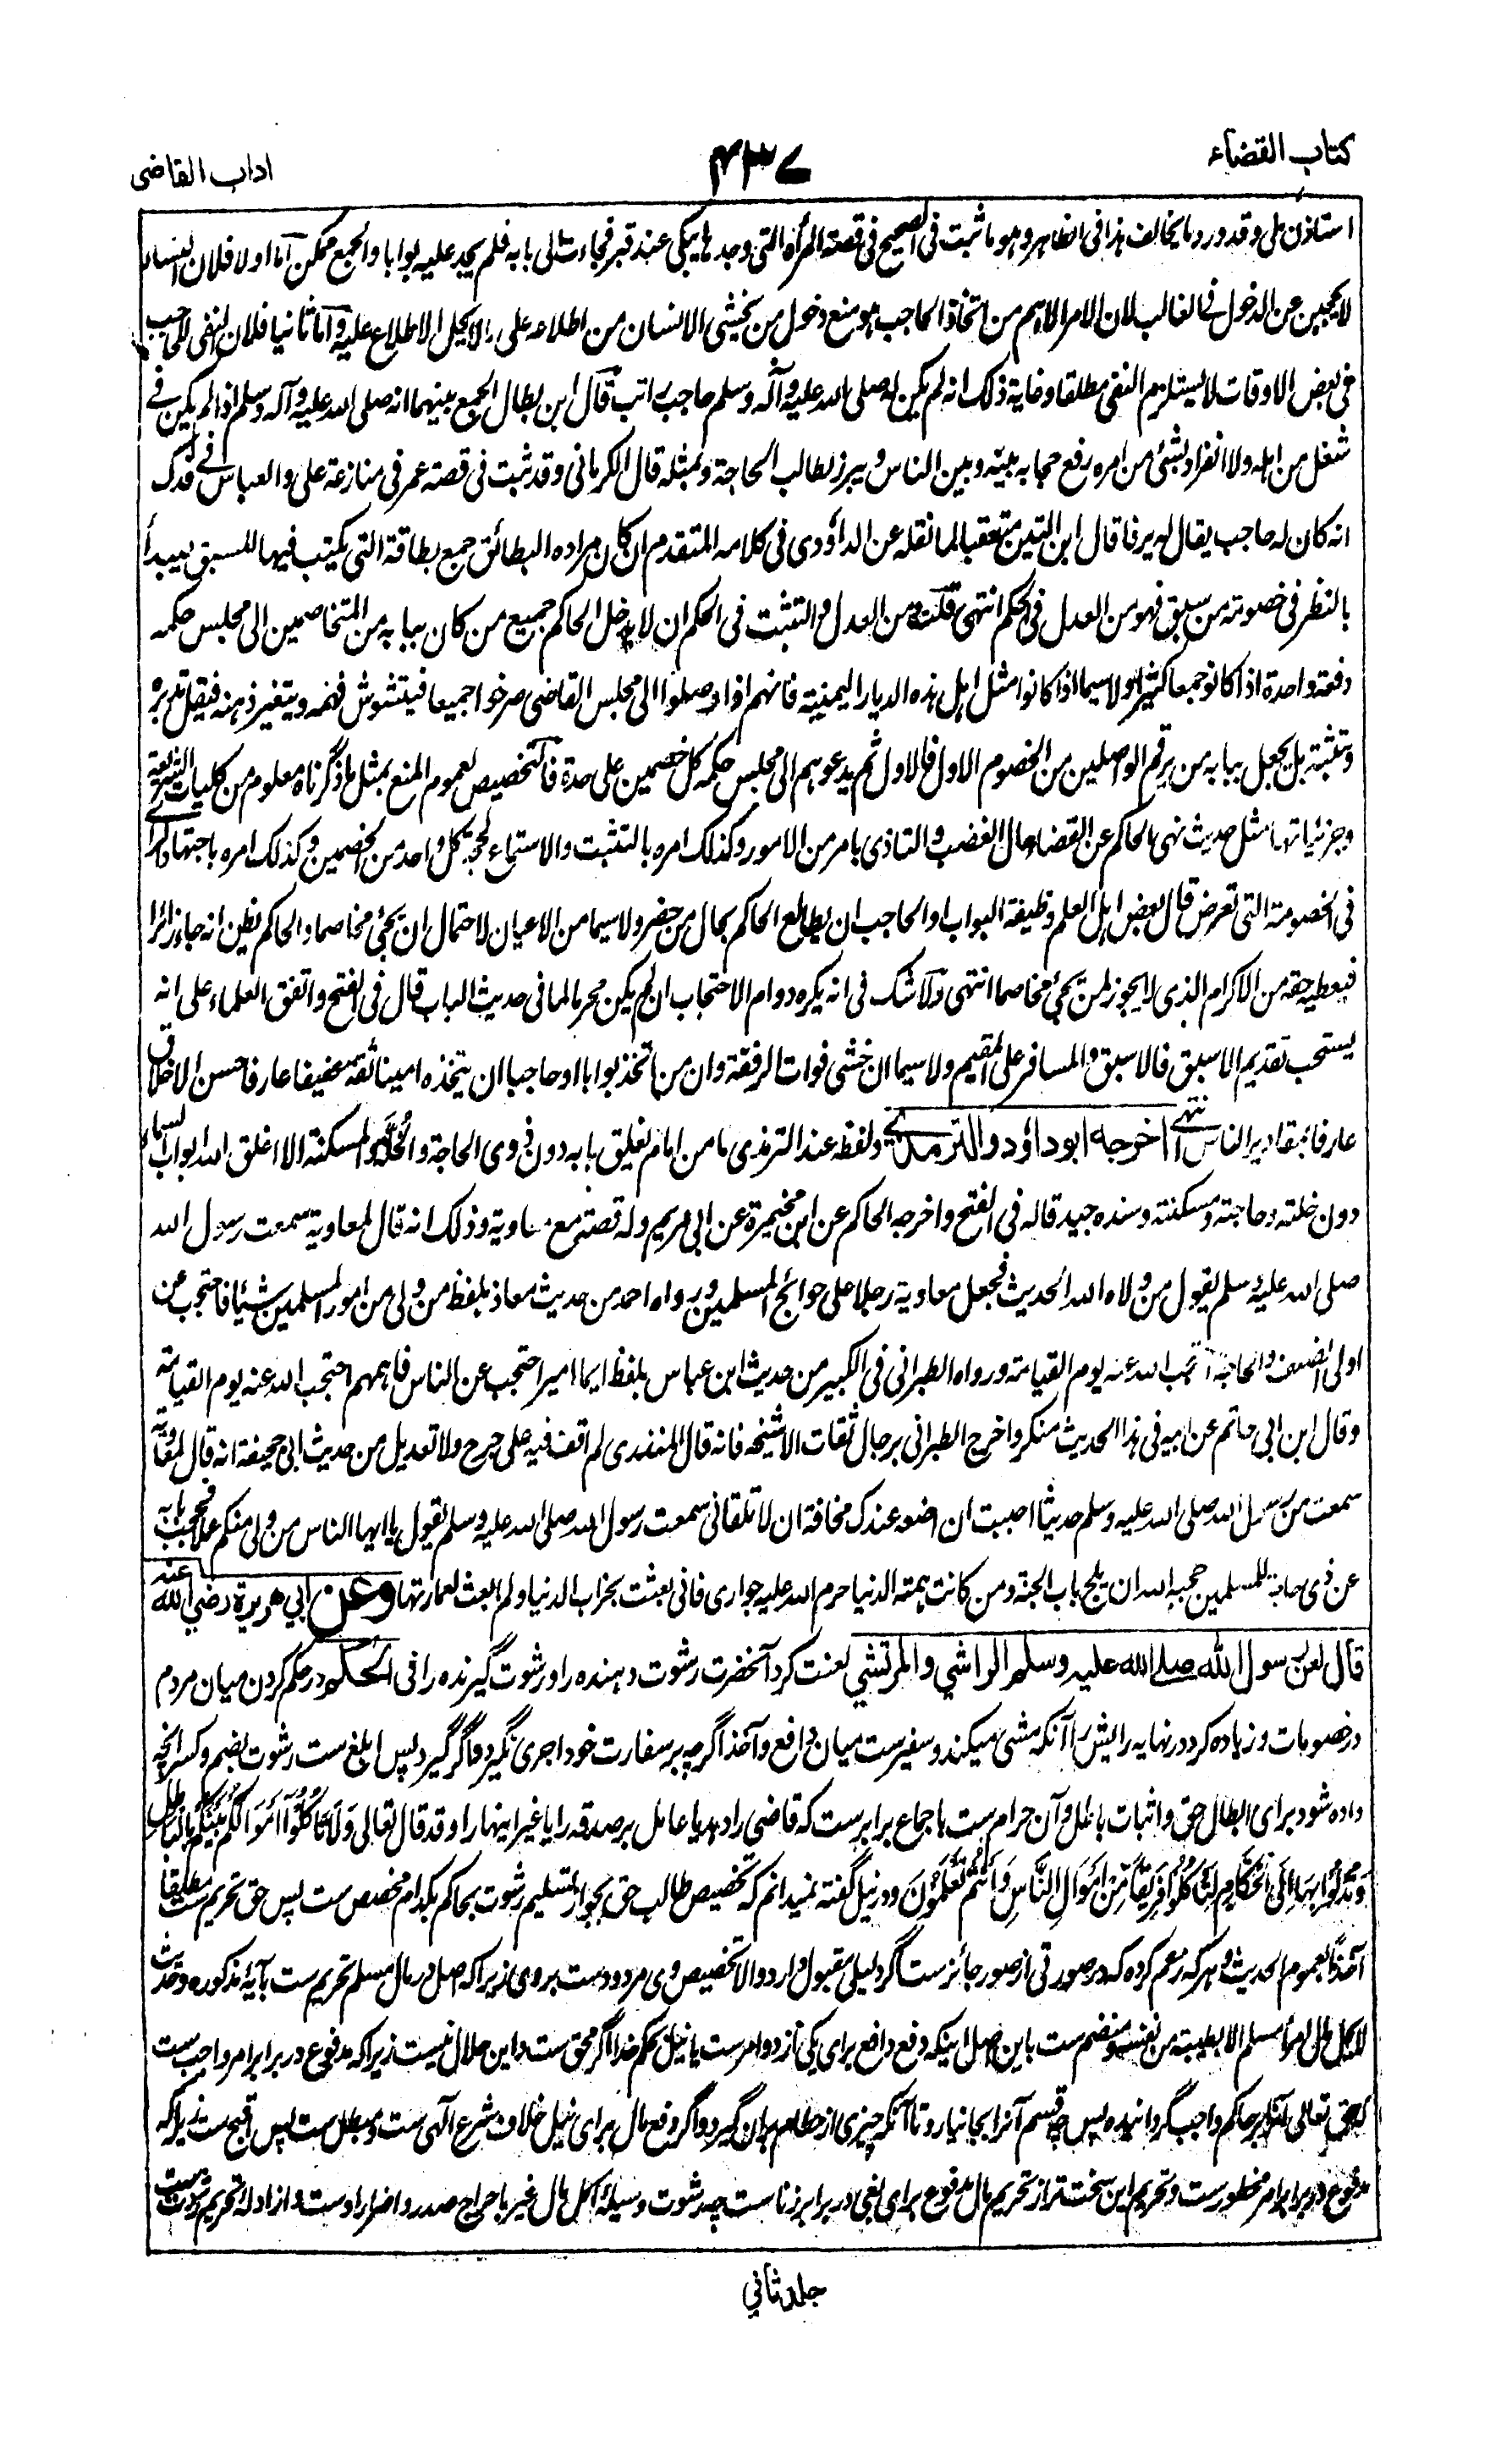 كتاب القضاء
٤٣٧
اداب القاضى
استاذن لى وقد ورد ما يخالف هذا فى الظاهر وهو ما ثبت فى الصحيح فى قصة المرأة التى وجدها يبكى عند قبر فجاءت الى بابه فلم يجد عليه بوابا والجمع ممكن اما اولا فلان النساء
لا يحجبن عن الدخول فى الغالب لان الامر الاهم من اتخاذ الحاجب هو منع دخول من يخشى الانسان من اطلاعه على ما لا يحل الاطلاع عليه واما ثانيا فلان النفى للحاجب
فى بعض الاوقات لا يستلزم النفى مطلقا وغاية ذلك انه لم يكن له صلى الله عليه وآله وسلم حاجب راتب قال ابن بطال الجمع بينهما انه صلى الله عليه وآله وسلم اذا لم يكن فى
شغل من اهله ولا انفراد بشئ من امره رفع حجابه بينه وبين الناس ويبرز لطالب الحاجة وبمثله قال الكرمانى وقد ثبت فى قصة عمر فى منازعة على والعباس فى فدك
انه كان له حاجب يقال له يرفا قال ابن التين متعقبا لما نقله عن الداودى فى كلامه المتقدم ان كان مراده البطائق جمع بطاقة التى يكتب فيها للسبق ليبدأ
بالنظر فى خصومة من سبق فهو من العدل فى الحكم انتهى قلت ومن العدل والتثبت فى الحكم ان لا يدخل الحاكم جميع من كان ببابه من المتخاصمين الى مجلس حكمه
دفعة واحدة اذا كانوا جمعا كثيرا ولا سيما اذا كانوا مثل اهل هذه الديار اليمنية فانهم اذا وصلوا الى مجلس القاضى صرخوا جميعا فيتشوش فهمه ويتغير ذهنه فيقل تدبره
وتثبته بل يجعل ببابه من يرقم الواصلين من الخصوم الاول فالاول ثم يدعوهم الى مجلس حكمه كل خصمين على حدة فالتخصيص لعموم المنع بمثل ما ذكرناه معلوم من كليات الشريعة
وجزئياتها مثل حديث نهى الحاكم عن القضاء حال الغضب والتاذى بامر من الامور وكذلك امره بالتثبت والاستماع لحجة كل واحد من الخصمين وكذلك امره باجتهاد الرأى
فى الخصومة التى تعرض قال بعض اهل العلم وظيفة البواب او الحاجب ان يطالع الحاكم بحال من حضر ولا سيما من الاعيان لاحتمال ان يجئ مخاصما والحاكم يظن انه جاء زائرا
فيعطيه حقه من الاكرام الذى لا يجوز لمن يجئ مخاصما انتهى ولا شك فى انه يكره دوام الاحتجاب ان لم يكن محرما لما فى حديث الباب قال فى الفتح واتفق العلماء على انه
يستحب تقديم الاسبق فالاسبق والمسافر على المقيم ولا سيما ان خشى فوات الرفقة وان من اتخذ بوابا او حاجبا ان يتخذه امينا ثقة عفيفا عارفا حسن الاخلاق
عارفا بمقادير الناس انتهى اخرجه ابو داؤد والترمذى ولفظه عند الترمذى ما من امام يغلق بابه دون ذوى الحاجة والخلة والمسكنة الا اغلق الله ابواب السماء
دون خلته وحاجته ومسكنته وسنده جيد قاله فى الفتح واخرجه الحاكم عن ابن مخيمرة عن ابى مريم وله قصة مع معاوية وذلك انه قال لمعاوية سمعت رسول الله
صلى الله عليه وسلم يقول من ولاه الله الحديث فجعل معاوية رجلا على حوائج المسلمين ورواه احمد من حديث معاذ بلفظ من ولى من امور المسلمين شيئا فاحتجب عن
اولى الضعف والحاجة احتجب الله عنه يوم القيامة ورواه الطبرانى فى الكبير من حديث ابن عباس بلفظ ايما امير احتجب عن الناس فاهمهم احتجب الله عنه يوم القيامة
وقال ابن ابى حاتم عن ابيه فى هذا الحديث منكر واخرج الطبرانى برجال ثقات الا شيخه فانه قال المنذرى لم اقف فيه على جرح ولا تعديل من حديث ابى جحيفة انه قال لمعاوية
سمعت من رسول الله صلى الله عليه وسلم حديثا احببت ان اضعه عندك مخافة ان لا تلقانى سمعت رسول الله صلى الله عليه وسلم يقول يا ايها الناس من ولى منكم عملا فحجب بابه
عن ذى حاجة للمسلمين حجبه الله ان يلج باب الجنة ومن كانت همته الدنيا حرم الله عليه جوارى فانى بعثت بخراب الدنيا ولم ابعث لعمارتها وعن ابي هريرة رضي الله عنه
قال لعن رسول الله صلى الله عليه وسلم الراشي والمرتشي لعنت كرد آنحضرت رشوت دهنده را ورشوت گيرنده را فى الحكم در حكم كردن ميان مردم
در خصومات و زياده كرد در نهايه رايش را آنكه مشى ميكند و سفيرست ميان دافع و آخذ اگر چه بر سفارت خود اجرى نگيرد واگر گيرد پس ابلغ ست رشوت بضم وكسر انچه
داده شود براى ابطال حق و اثبات باطل و آن حرام ست با جماع برابرست كه قاضى را دهد يا عامل بر صدقه را يا غير اينها را وقد قال تعالى وَلَا تَأْكُلُوٓا اَمْوَالَكُمْ بَيْنَكُمْ بِالْبَاطِلِ
وَتُدْلُوْا بِهَآ اِلَى الْحُكَّامِ لِتَأْكُلُوْا فَرِيْقًا مِّنْ اَمْوَالِ النَّاسِ وَاَنْتُمْ تَعْلَمُوْنَ ودر نيل گفته نميدانم كه تخصيص طالب حق بجواز تسليم رشوت بحاكم بكدام مخصص ست پس حق تحريم ست مطلقا
اخذًا بعموم الحديث و هر كه زعم كرده كه در صورتى از صور جائزست اگر دليلى مقبول آرد والا تخصيص وى مردودست بروى زيرا كه اصل در مال مسلم تحريم ست بآيهٔ مذكوره وحديث
لا يحل مال امرأ مسلم الا بطيبة من نفسه ومنضم ست باين اصل اينكه دفع دافع براى يكى از دو امرست يا نيل حكم خدا اگر محق ست و اين حلال نيست زيرا كه مدفوع در برابر امر واجب ست
كه حق تعالى آنرا بر حاكم واجب گردانيده پس چه قسم آنرا بجا نيارد تا آنكه چيزى از حطام بران گيرد واگر دفع مال براى نيل خلاف شرع الٓهى ست و مبطل ست پس اقبح ست زيرا كه
مدفوع در برابر امر محظورست وتحريم اين سخت تر از تحريم مال مدفوع براى بغى در برابر زناست چه رشوت وسيلهٔ اكل مال غير با حراج صدر واضرار اوست واز ادلهٔ تحريم رشوت ست
جلد ثاني